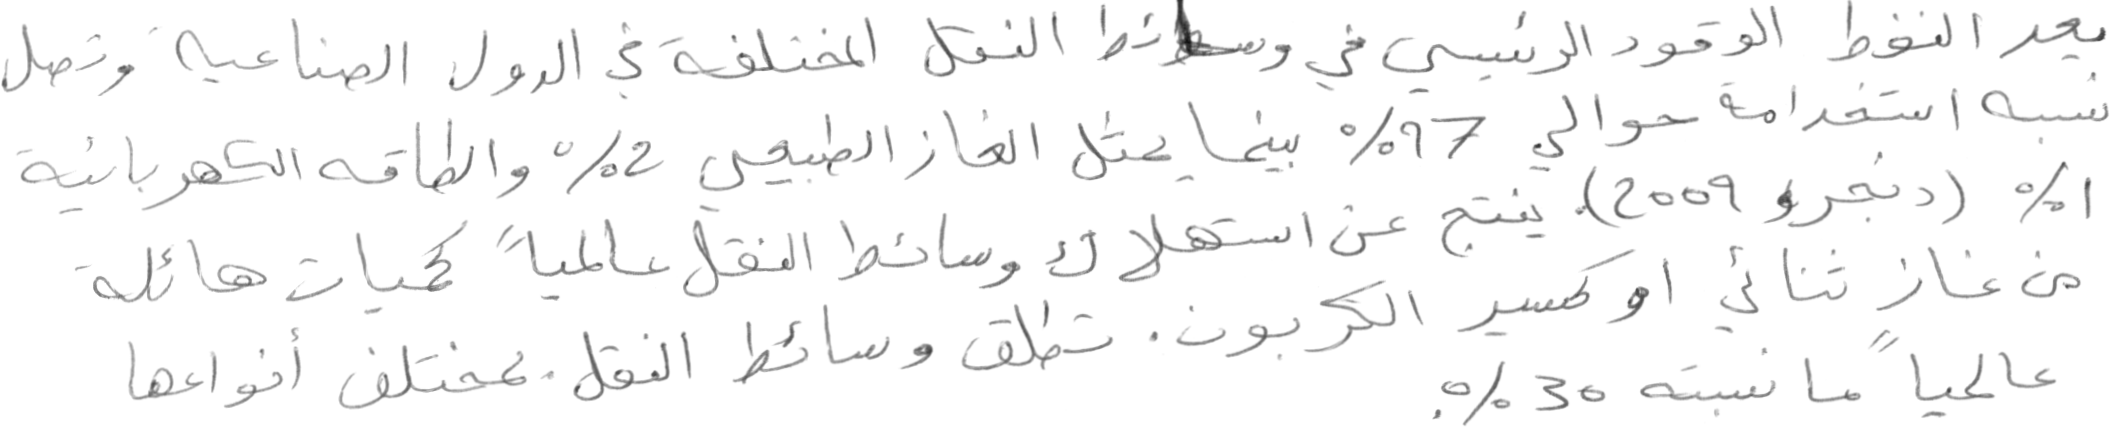 يعد النفط الوقود الرئيسي في وسائط النقل المختلفة في الدول الصناعية وتصل
نسبه استخدامة حوالي 97% بينما يمثل الغاز الطبيعي 2% والطاقه الكهربائية
1% (دنجرو 2009). ينتج عن استهلاك وسائط النقل عالمياً كميات هائلة
من غاز ثنائي اوكسيد الكربون. تطلق وسائط النقل بمختلف أنواعها
عالمياً ما نسبته 30%.